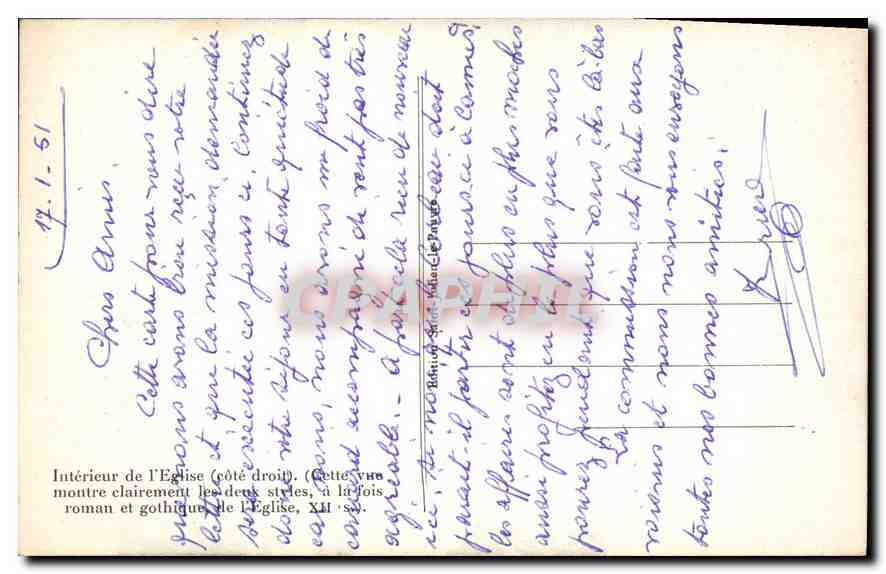 17-1-51
Chers Amis.
Cette carte pour vous dire
que nous avons bien reçu votre
lettre et que la mission demandée
sera exécutée ces jours ci. Continuez
donc votre en toute quiétude
car nous, nous avons un froid de
canard accompagné de vent pas très
agréable. - A part cela rien de nouveau
ici, si non que le beau doit
parait-il partir ces jours-ci à Cannes.
les affaires sont de plus en plus moches
aussi profitez en le plus que vous
pourrez pendant que vous êtes là-bas
La commission est faite aux
voisins et nous nous vous envoyons
toutes nos bonnes amitiés.
Intérieur de l'Eglise (côté droit). (Cette vue
montre clairement les deux styles, à la fois
roman et gothique, de l'Eglise, XII s.).
Edition Saint-Julien-le-Pauvre
CPAPHIL